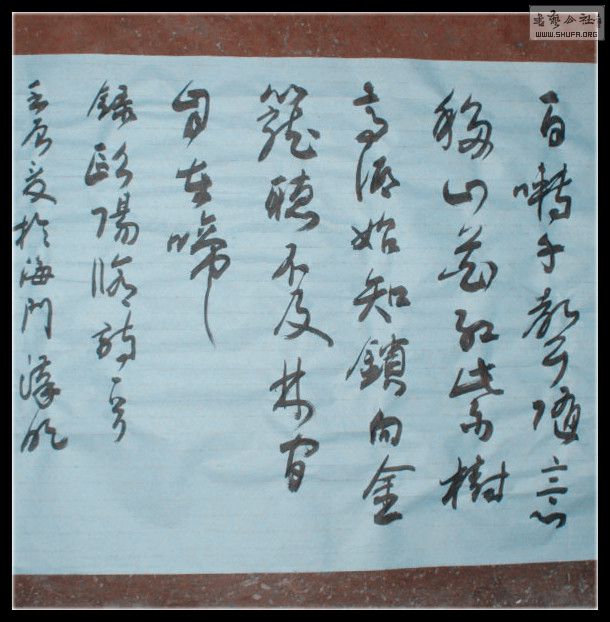 書藝公社
WWW.SHUFA.ORG
百囀千聲隨意
移山花紅紫樹
高低始知鎖向金
籠聽不及林間
自在啼
錄歐陽脩詩一首
壬辰夏於海門